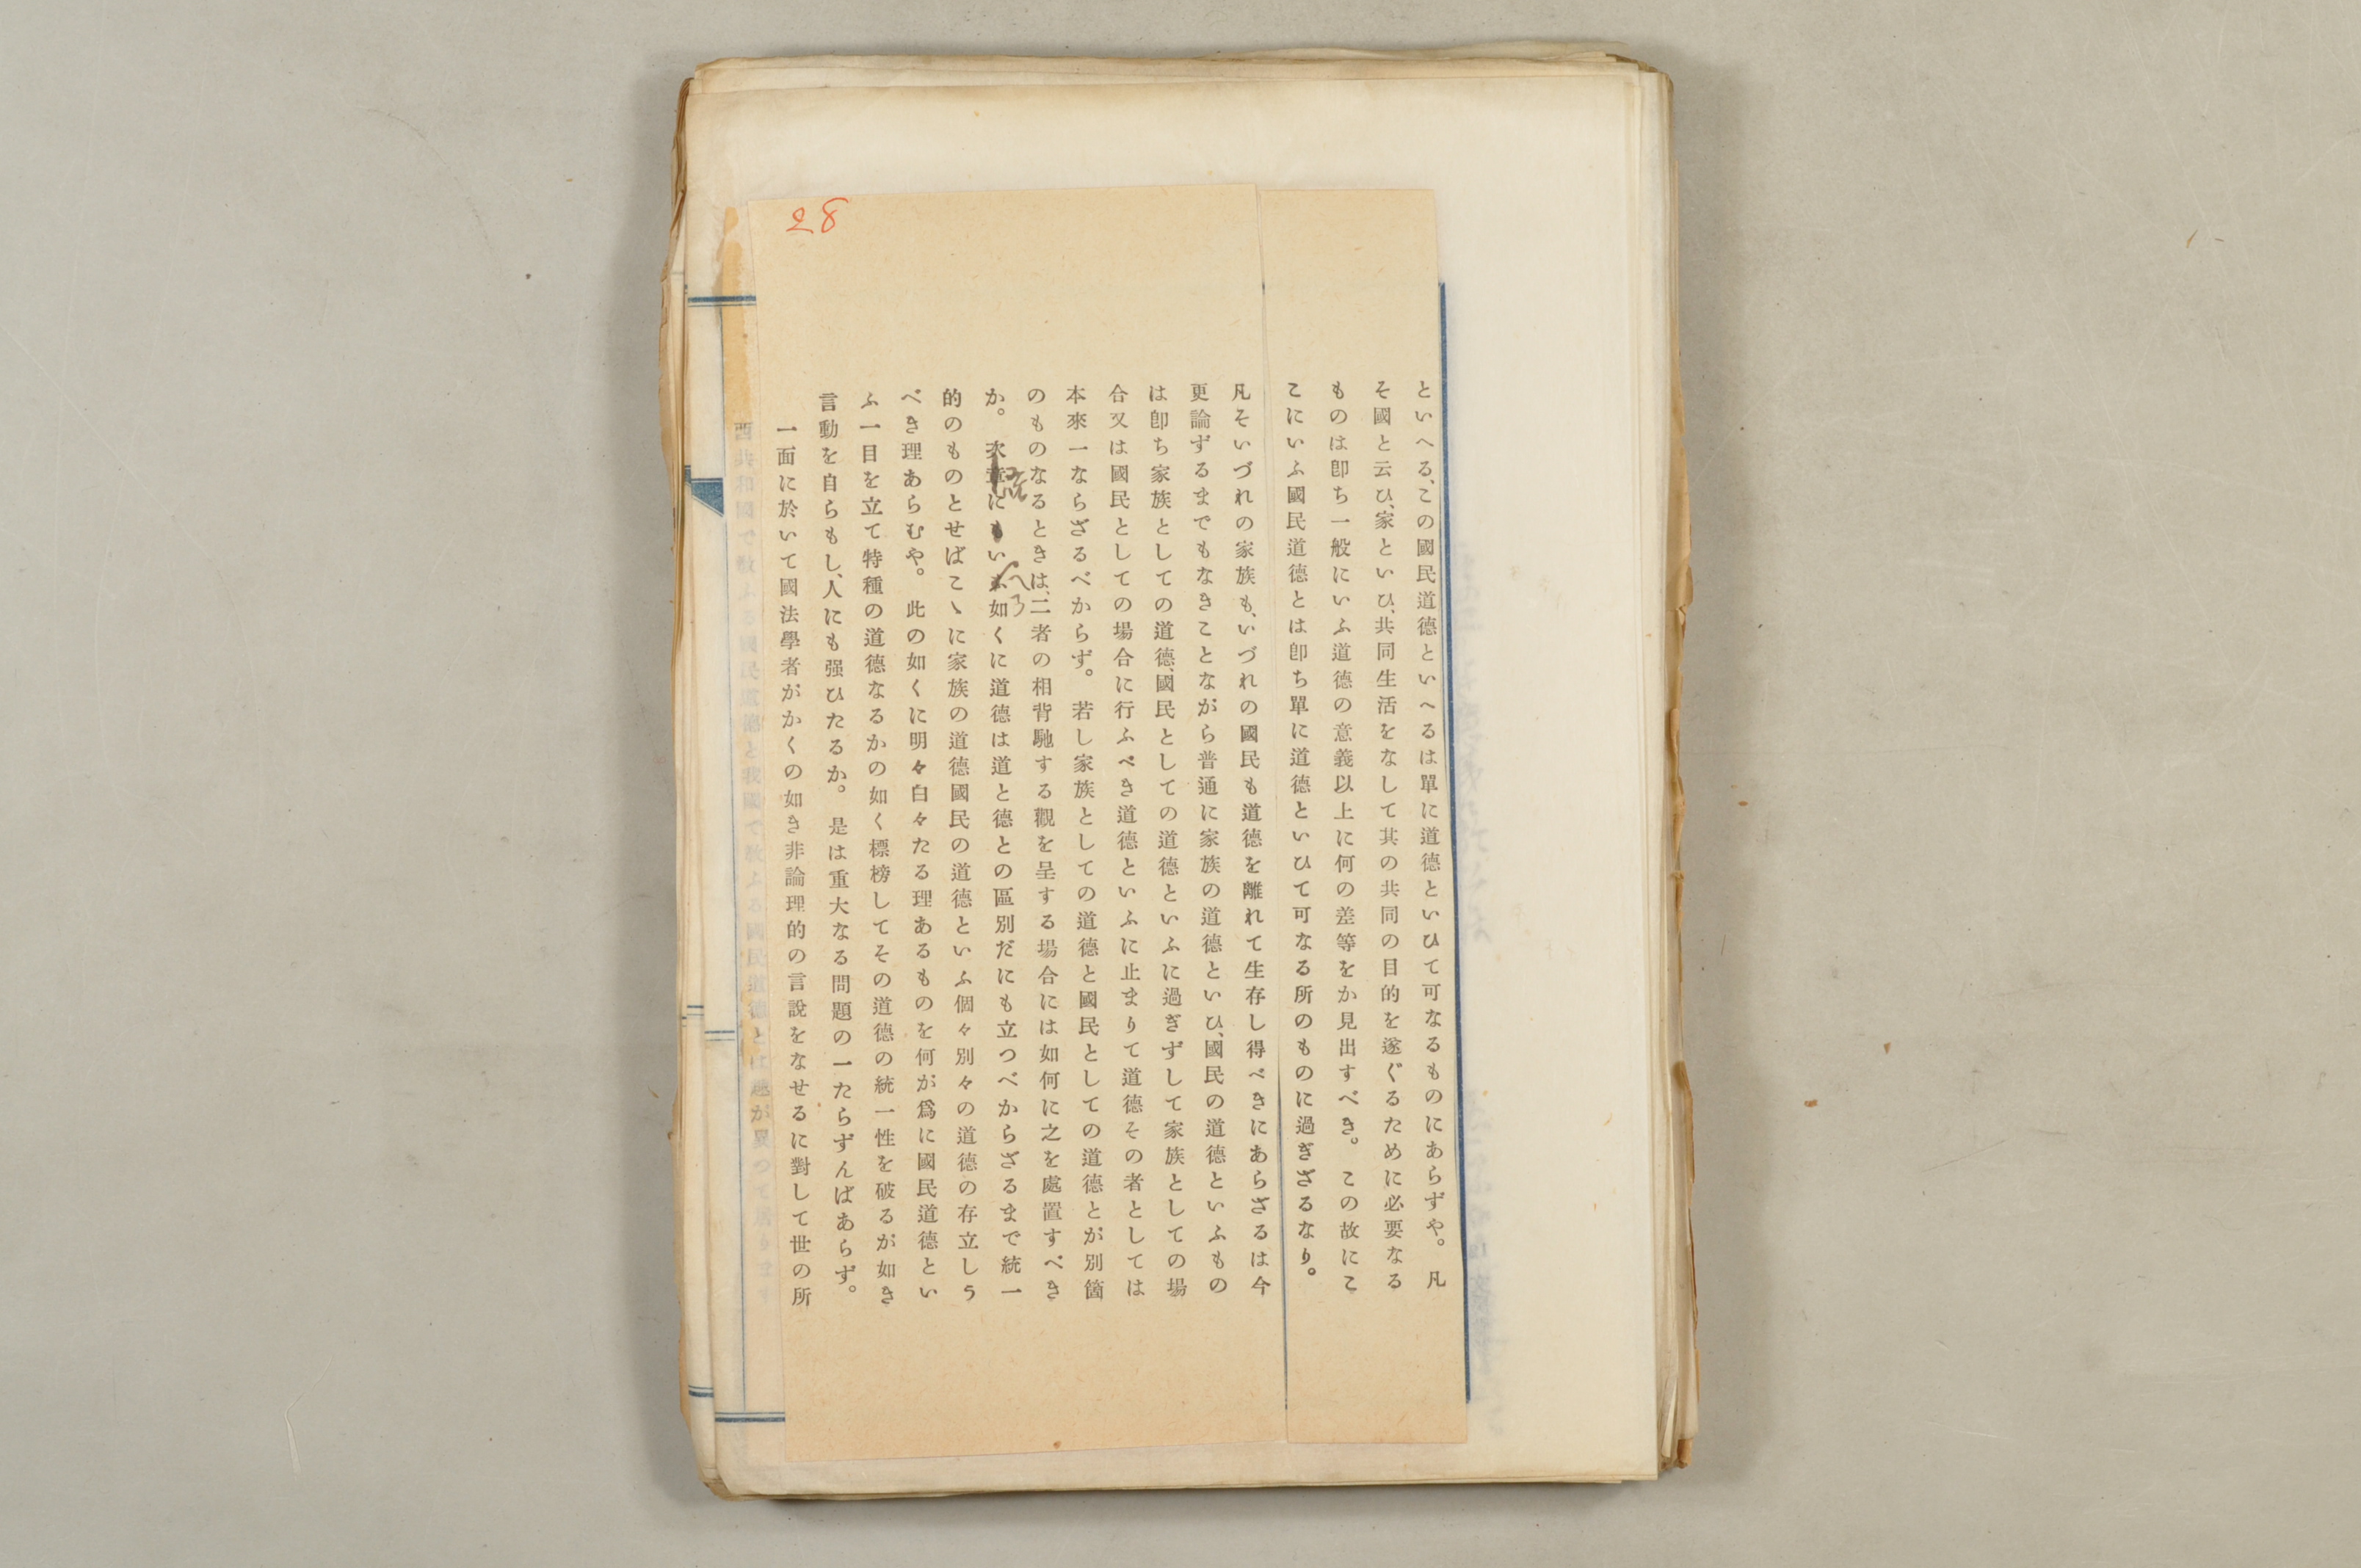 28
といへる、この國民道德といへるは單に道德といひて可なるものにあらずや。凡
そ國と云ひ、家といひ、共同生活をなして其の共同の目的を遂ぐるために必要なる
ものは卽ち一般にいふ道德の意義以上に何の差等をか見出すべき。この故にこ
こにいふ國民道德とは卽ち單に道德といひて可なる所のものに過ぎざるなり。
凡そいづれの家族も、いづれの國民も道德を離れて生存し得べきにあらざるは今
更論ずるまでもなきことながら普通に家族の道德といひ、國民の道德といふもの
は卽ち家族としての道德、國民としての道德といふに過ぎずして家族としての場
合又は國民としての場合に行ふべき道德といふに止まりて道德その者としては
本來一ならざるべからず。若し家族としての道德と國民としての道德とが別箇
のものなるときは、二者の相背馳する觀を呈する場合には如何に之を處置すべき
か。次章にもいふ如くに道德は道と德との區別だにも立つべからざるまで統一
的のものとせばこゝに家族の道德國民の道德といふ個々別々の道德の存立しう
べき理あらむや。此の如くに明々白々たる理あるものを何が爲に國民道德とい
ふ一目を立て特種の道德なるかの如く標榜してその道德の統一性を破るが如き
言動を自らもし、人にも强ひたるか。是は重大なる問題の一たらずんばあらず。
一面に於いて國法學者がかくの如き非論理的の言說をなせるに對して世の所